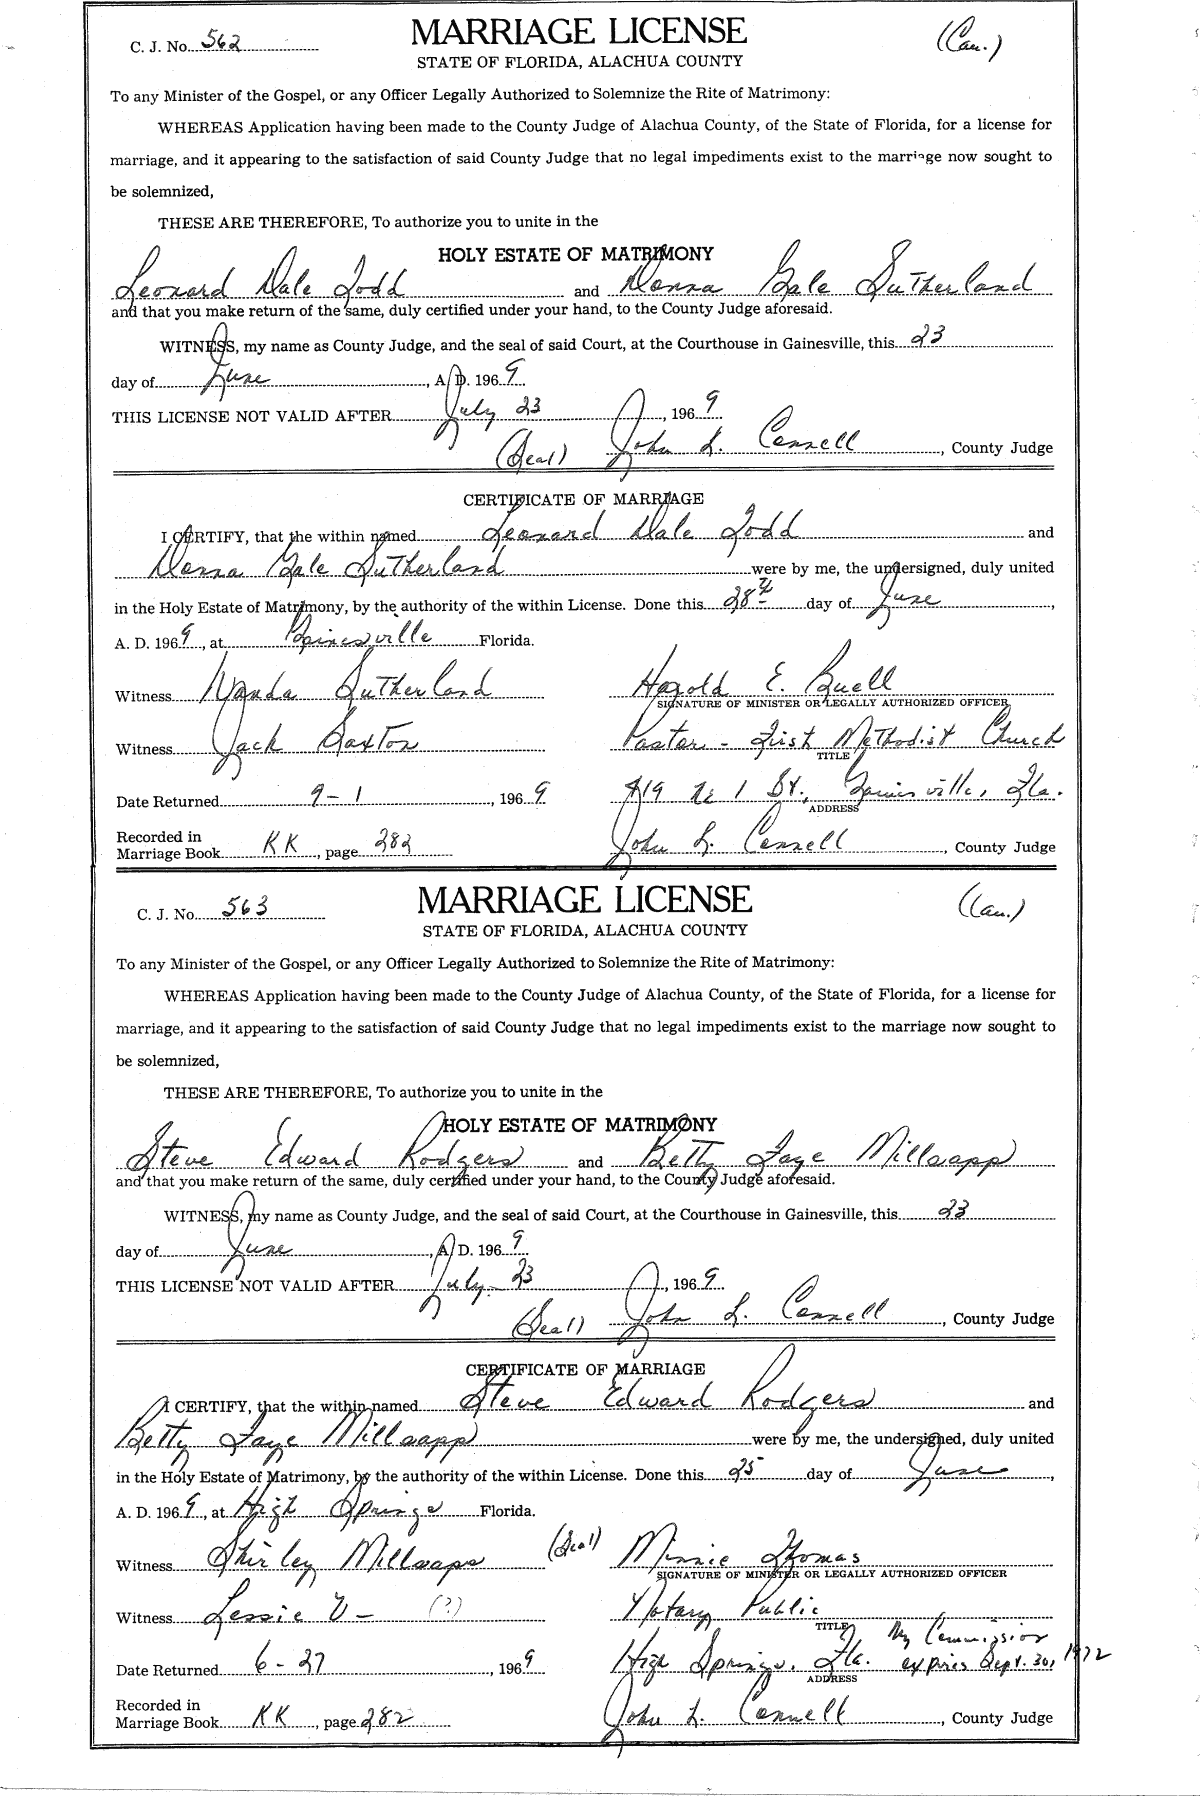 C. J. No. 562 MARRIAGE LICENSE (Cau.)
STATE OF FLORIDA, ALACHUA COUNTY
To any Minister of the Gospel, or any Officer Legally Authorized to Solemnize the Rite of Matrimony:
WHEREAS Application having been made to the County Judge of Alachua County, of the State of Florida, for a license for
marriage, and it appearing to the satisfaction of said County Judge that no legal impediments exist to the marriage now sought to
be solemnized,
THESE ARE THEREFORE, To authorize you to unite in the
HOLY ESTATE OF MATRIMONY
Leonard Dale Todd and Donna Gale Sutherland
and that you make return of the same, duly certified under your hand, to the County Judge aforesaid.
WITNESS, my name as County Judge, and the seal of said Court, at the Courthouse in Gainesville, this 23
day of June, A. D. 1969
THIS LICENSE NOT VALID AFTER July 23, 1969
(Seal) John L. Connell, County Judge
CERTIFICATE OF MARRIAGE
I CERTIFY, that the within named Leonard Dale Todd and
Donna Gale Sutherland were by me, the undersigned, duly united
in the Holy Estate of Matrimony, by the authority of the within License. Done this 28th day of June,
A. D. 1969, at Gainesville Florida.
Witness Wanda Sutherland Harold E. Buell
SIGNATURE OF MINISTER OR LEGALLY AUTHORIZED OFFICER
Witness Jack Saxton Pastor - First Methodist Church
TITLE
Date Returned 9-1, 1969 419 NE 1 St., Gainesville, Fla.
ADDRESS
Recorded in
Marriage Book KK, page 282 John L. Connell, County Judge
C. J. No. 563 MARRIAGE LICENSE (Cau.)
STATE OF FLORIDA, ALACHUA COUNTY
To any Minister of the Gospel, or any Officer Legally Authorized to Solemnize the Rite of Matrimony:
WHEREAS Application having been made to the County Judge of Alachua County, of the State of Florida, for a license for
marriage, and it appearing to the satisfaction of said County Judge that no legal impediments exist to the marriage now sought to
be solemnized,
THESE ARE THEREFORE, To authorize you to unite in the
HOLY ESTATE OF MATRIMONY
Steve Edward Rodgers and Betty Faye Millsapp
and that you make return of the same, duly certified under your hand, to the County Judge aforesaid.
WITNESS, my name as County Judge, and the seal of said Court, at the Courthouse in Gainesville, this 23
day of June, A. D. 1969
THIS LICENSE NOT VALID AFTER July 23, 1969
(Seal) John L. Connell, County Judge
CERTIFICATE OF MARRIAGE
I CERTIFY, that the within named Steve Edward Rodgers and
Betty Faye Millsapp were by me, the undersigned, duly united
in the Holy Estate of Matrimony, by the authority of the within License. Done this 25 day of June,
A. D. 1969, at High Springs Florida.
Witness Shirley Millsapps (Seal) Minnie Thomas
SIGNATURE OF MINISTER OR LEGALLY AUTHORIZED OFFICER
Witness Lessie V- (?) Notary Public
TITLE My Commission
Date Returned 6-27, 1969 High Springs, Fla. expires Sept. 30, 1972
ADDRESS
Recorded in
Marriage Book KK, page 282 John L. Connell, County Judge